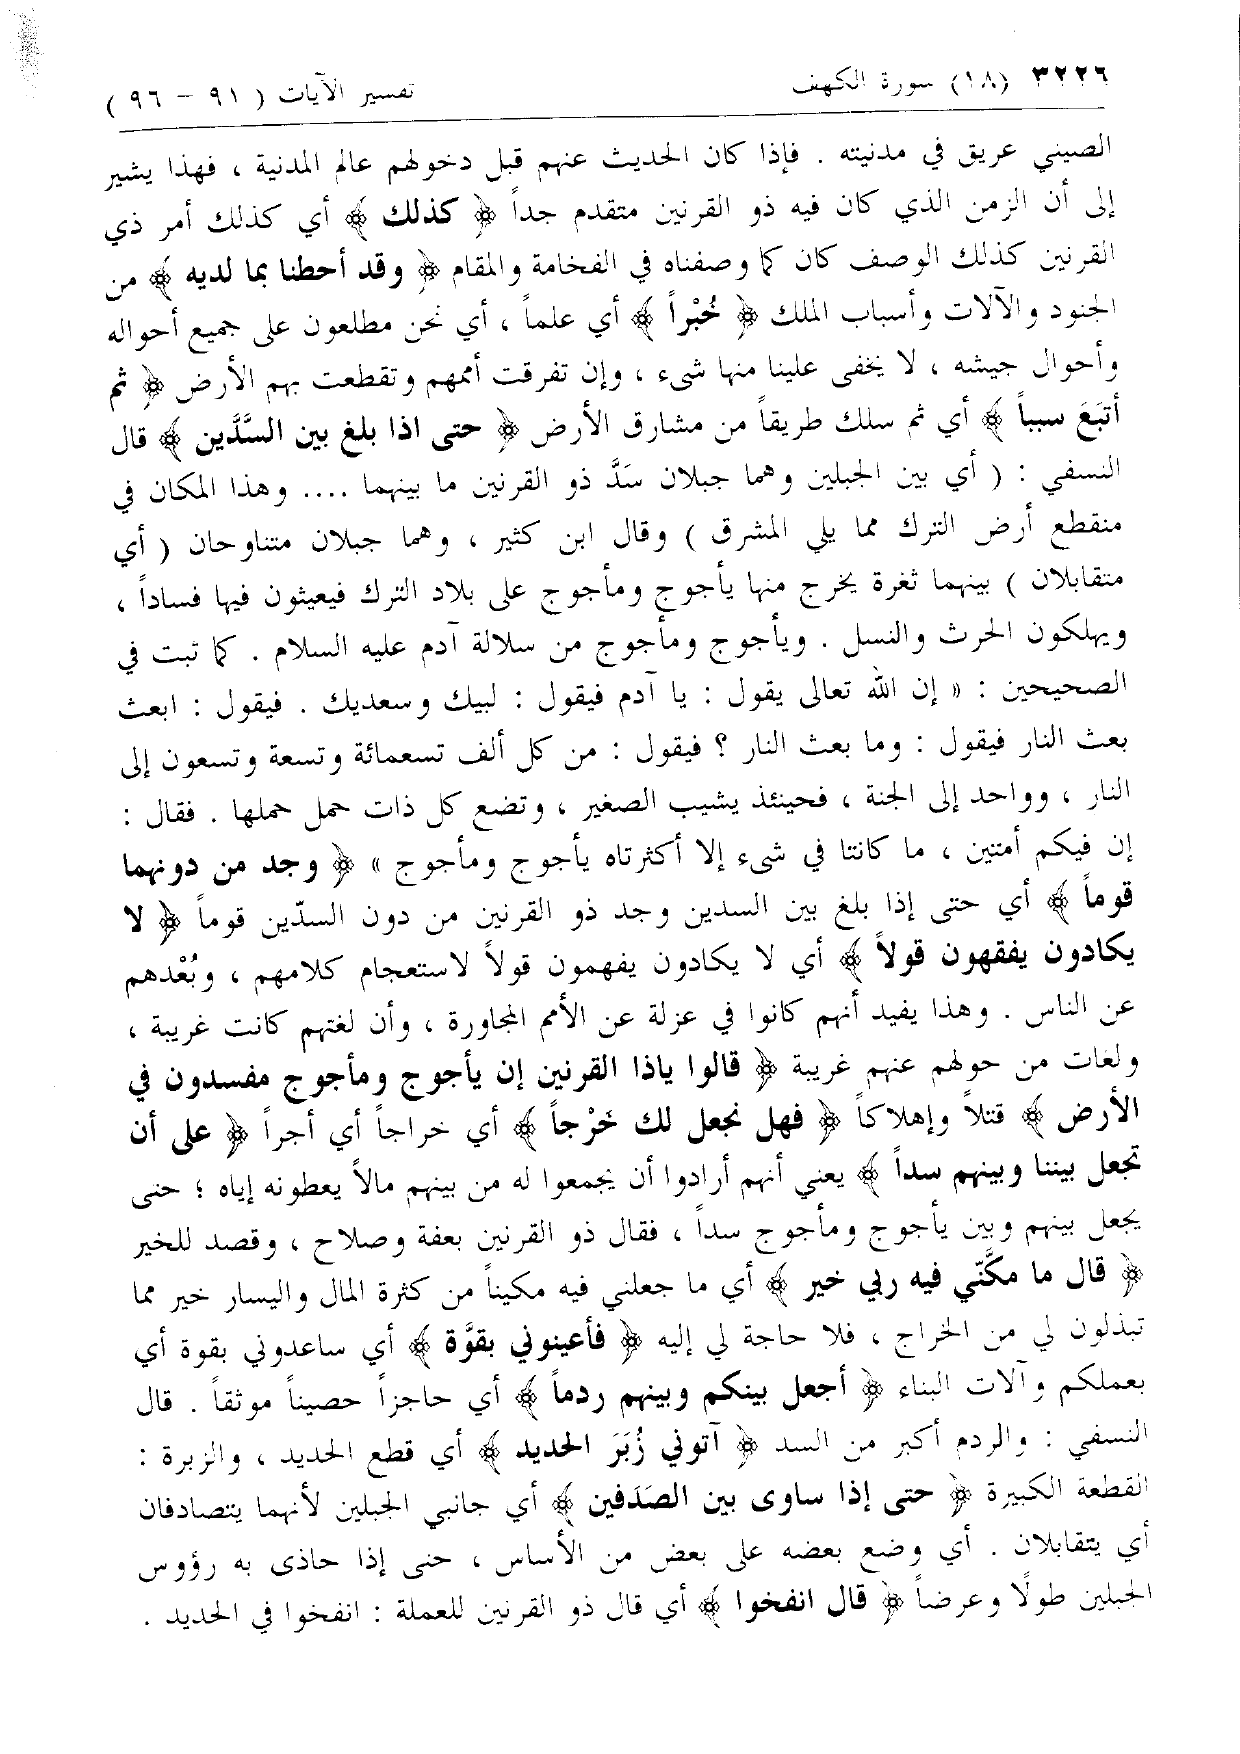 ٣٢٢٦ (١٨) سورة الكهف تفسير الآيات ( ٩١ - ٩٦ )
الصيني عريق في مدنيته . فإذا كان الحديث عنهم قبل دخولهم عالم المدنية ، فهذا يشير
إلى أن الزمن الذي كان فيه ذو القرنين متقدم جداً ﴿ كذلك ﴾ أي كذلك أمر ذي
القرنين كذلك الوصف كان كما وصفناه في الفخامة والمقام ﴿ وقد أحطنا بما لديه ﴾ من
الجنود والآلات وأسباب الملك ﴿ خُبْراً ﴾ أي علماً ، أي نحن مطلعون على جميع أحواله
وأحوال جيشه ، لا يخفى علينا منها شىء ، وإن تفرقت أممهم وتقطعت بهم الأرض ﴿ ثم
أتبَعَ سبباً ﴾ أي ثم سلك طريقاً من مشارق الأرض ﴿ حتى اذا بلغ بين السَّدَّين ﴾ قال
النسفي : ( أي بين الجبلين وهما جبلان سَدَّ ذو القرنين ما بينهما .... وهذا المكان في
منقطع أرض الترك مما يلي المشرق ) وقال ابن كثير ، وهما جبلان متناوحان ( أي
متقابلان ) بينهما ثغرة يخرج منها يأجوج ومأجوج على بلاد الترك فيعيثون فيها فساداً ،
ويهلكون الحرث والنسل . ويأجوج ومأجوج من سلالة آدم عليه السلام . كما ثبت في
الصحيحين : « إن الله تعالى يقول : يا آدم فيقول : لبيك وسعديك . فيقول : ابعث
بعث النار فيقول : وما بعث النار ؟ فيقول : من كل ألف تسعمائة وتسعة وتسعون إلى
النار ، وواحد إلى الجنة ، فحينئذ يشيب الصغير ، وتضع كل ذات حمل حملها . فقال :
إن فيكم أمتين ، ما كانتا في شىء إلا أكثرتاه يأجوج ومأجوج » ﴿ وجد من دونهما
قوماً ﴾ أي حتى إذا بلغ بين السدين وجد ذو القرنين من دون السدّين قوماً ﴿ لا
يكادون يفقهون قولاً ﴾ أي لا يكادون يفهمون قولاً لاستعجام كلامهم ، وبُعْدهم
عن الناس . وهذا يفيد أنهم كانوا في عزلة عن الأمم المجاورة ، وأن لغتهم كانت غريبة ،
ولغات من حولهم عنهم غريبة ﴿ قالوا ياذا القرنين إن يأجوج ومأجوج مفسدون في
الأرض ﴾ قتلاً وإهلاكاً ﴿ فهل نجعل لك خَرْجاً ﴾ أي خراجاً أي أجراً ﴿ على أن
تجعل بيننا وبينهم سداً ﴾ يعني أنهم أرادوا أن يجمعوا له من بينهم مالاً يعطونه إياه ؛ حتى
يجعل بينهم وبين يأجوج ومأجوج سداً ، فقال ذو القرنين بعفة وصلاح ، وقصد للخير
﴿ قال ما مكَّنّي فيه ربي خير ﴾ أي ما جعلني فيه مكيناً من كثرة المال واليسار خير مما
تبذلون لي من الخراج ، فلا حاجة لي إليه ﴿ فأعينوني بقوَّة ﴾ أي ساعدوني بقوة أي
بعملكم وآلات البناء ﴿ أجعل بينكم وبينهم ردماً ﴾ أي حاجزاً حصيناً موثقاً . قال
النسفي : والردم أكبر من السد ﴿ آتوني زُبَرَ الحديد ﴾ أي قطع الحديد ، والزبرة :
القطعة الكبيرة ﴿ حتى إذا ساوى بين الصَدَفين ﴾ أي جانبي الجبلين لأنهما يتصادفان
أي يتقابلان . أي وضع بعضه على بعض من الأساس ، حتى إذا حاذى به رؤوس
الجبلين طولًا وعرضاً ﴿ قال انفخوا ﴾ أي قال ذو القرنين للعملة : انفخوا في الحديد .